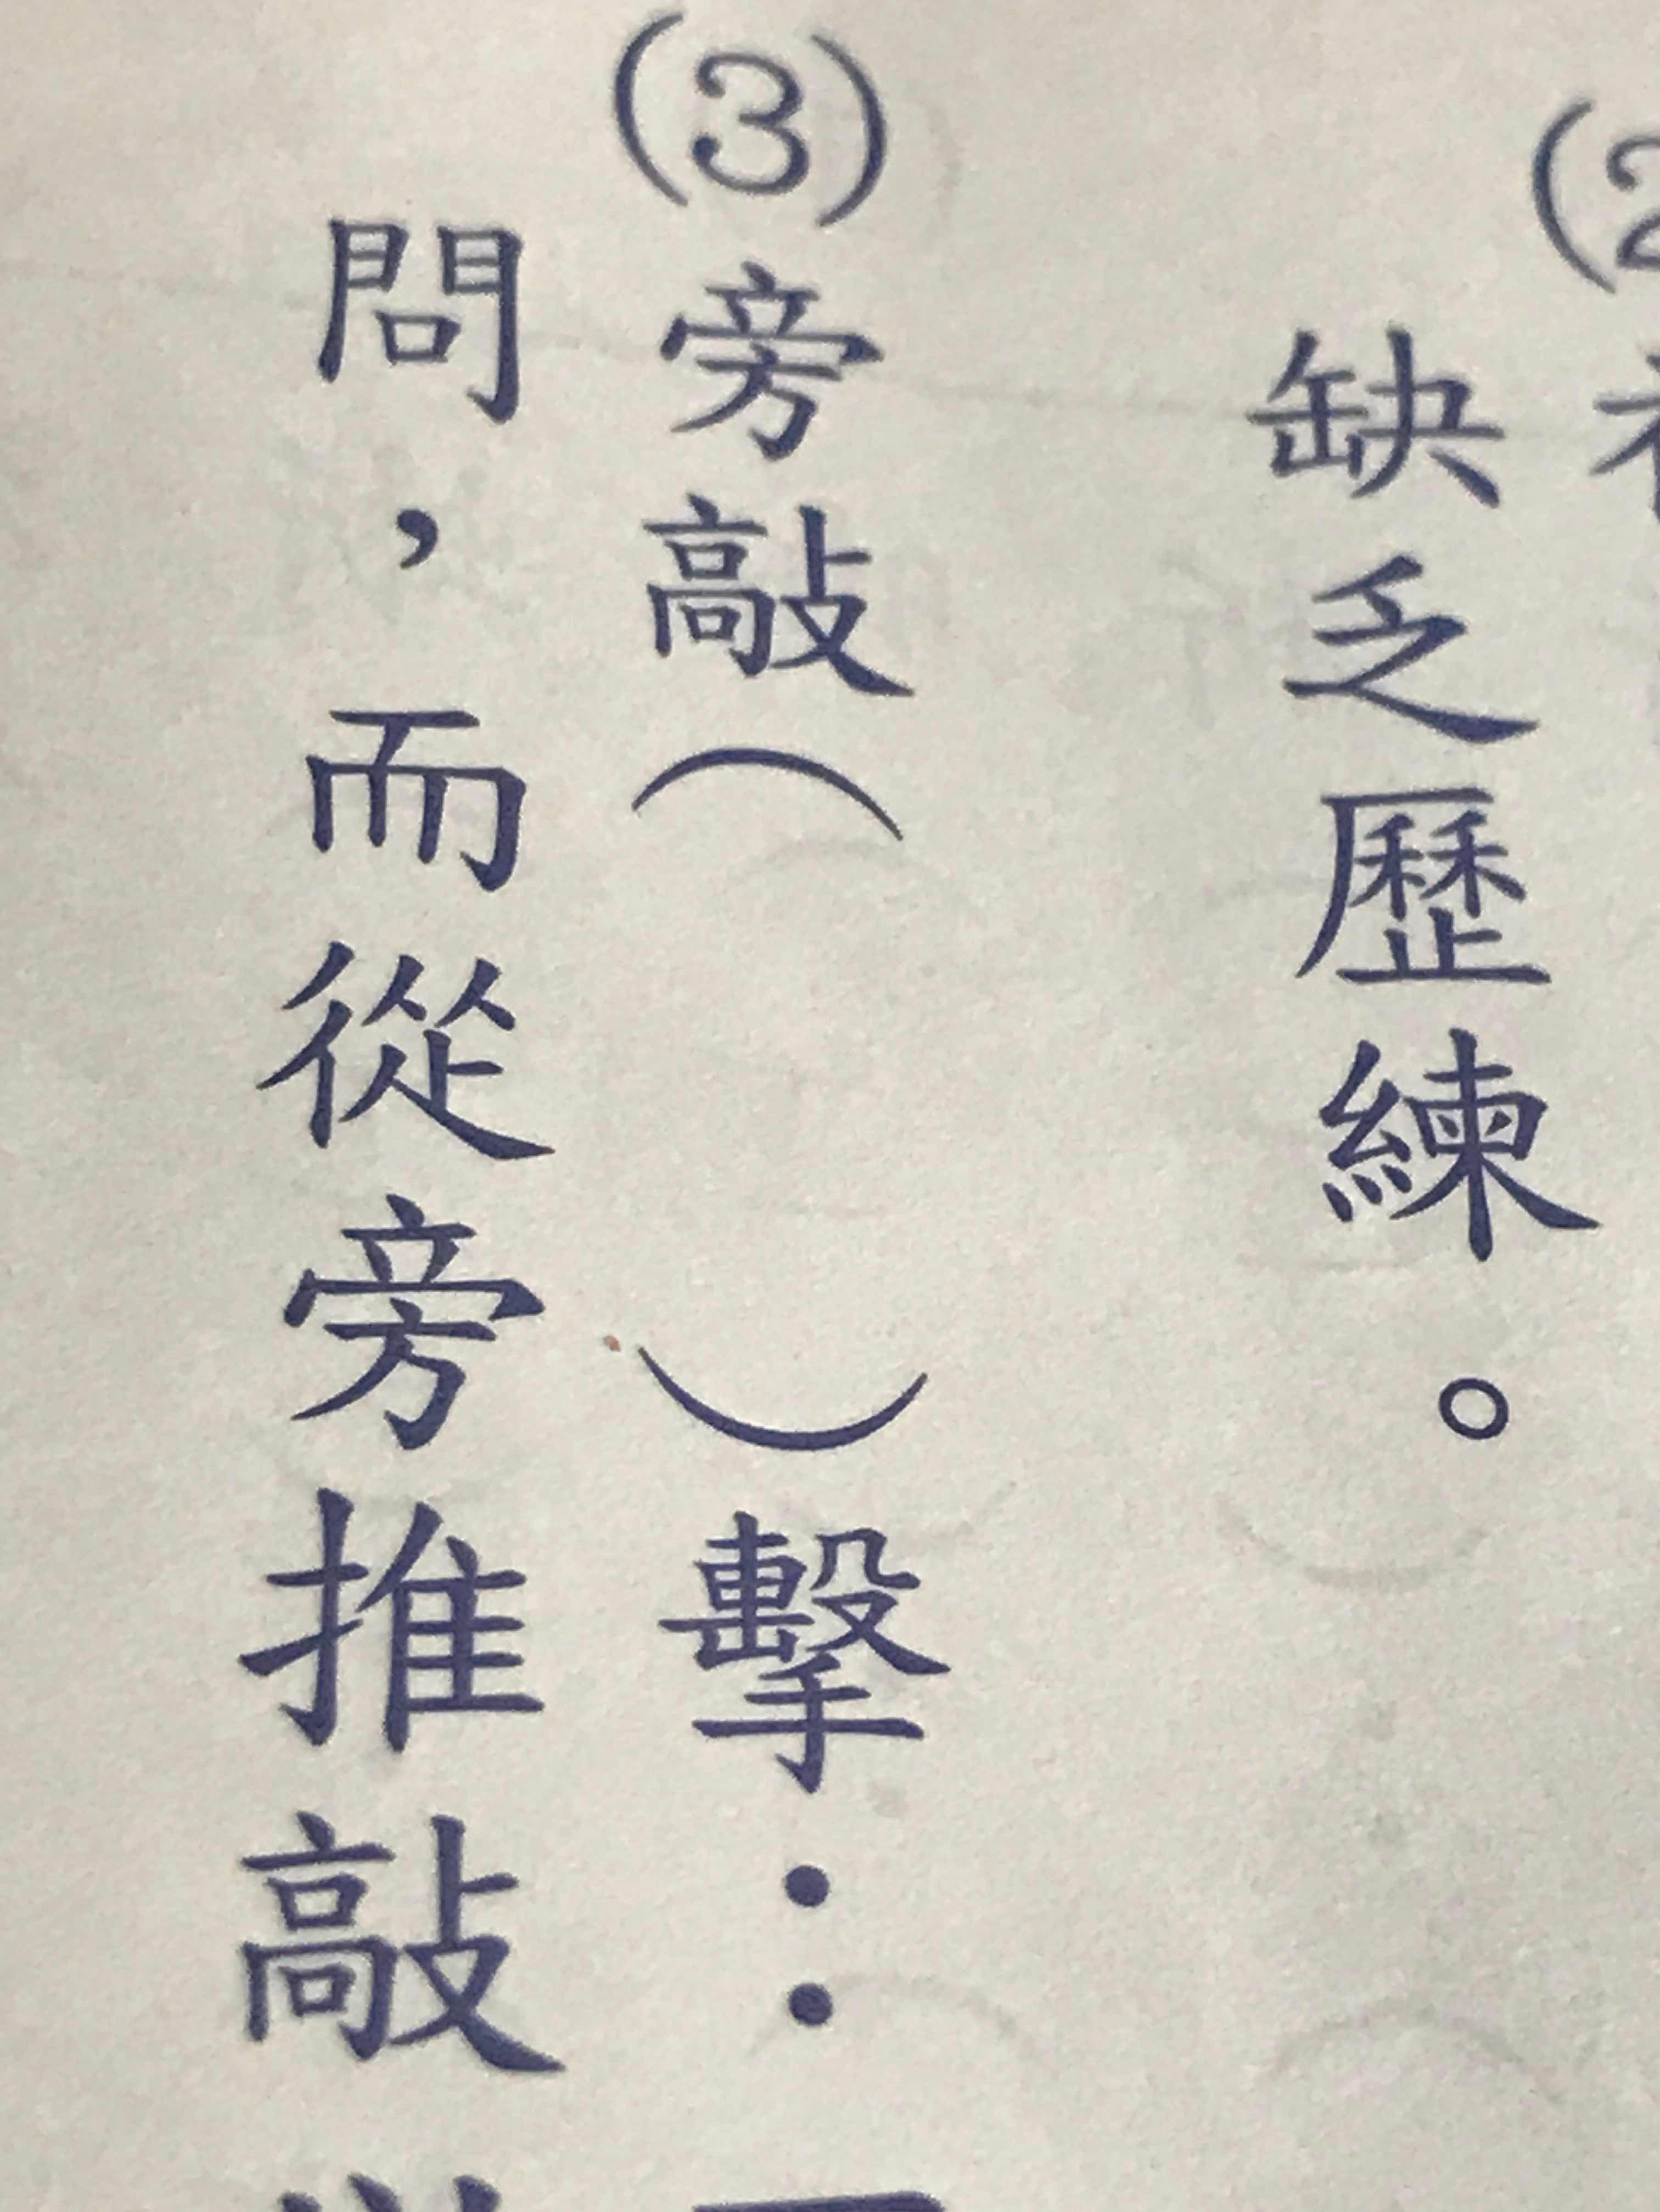 缺乏歷練。
(3)旁敲（　）擊：
問，而從旁推敲